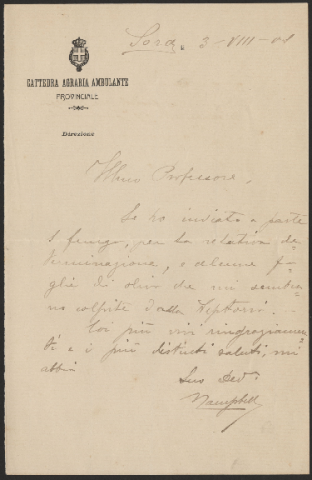 CATTEDRA AGRARIA AMBULANTE
PROVINCIALE
Direzione
Sora, 3-VIII-01
Illmo Professore,
Le ho inviato a parte
1 fungo, per la relativa de
terminazione, e alcune fo-
glie di olivo che mi sembra
no colpite dalla
Coi più vivi ringraziamen
ti e i più distinti saluti, mi
abbia
Suo Dev.